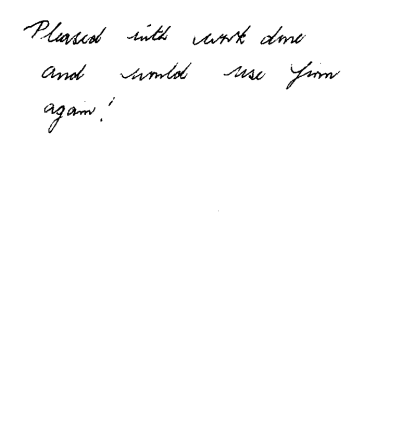 Pleased with work done
and would use firm
again!